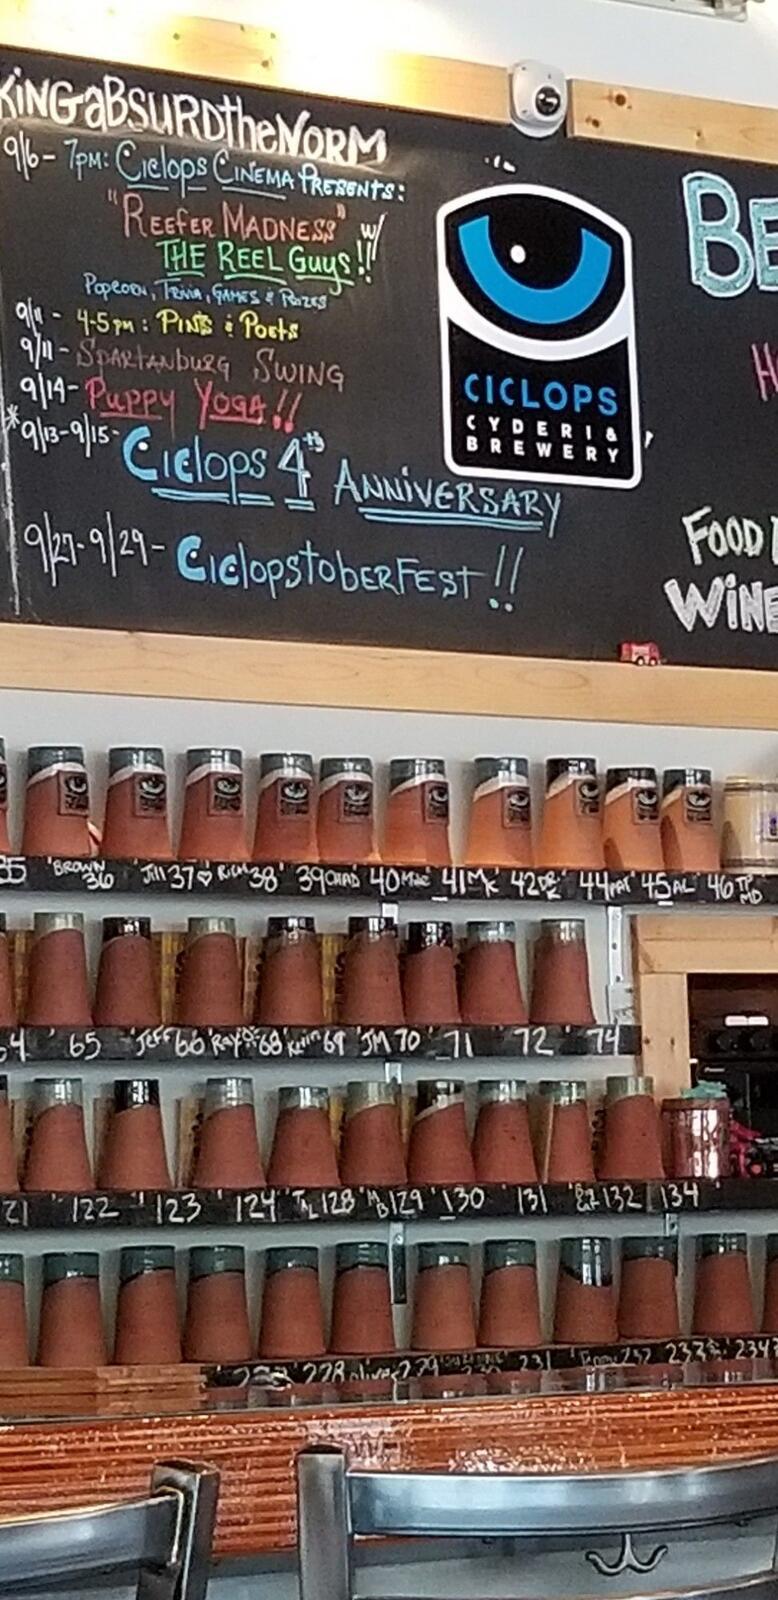 KINGaBSURDtheNORM
9/6 - 7pm: Ciclops CINEMA PRESENTS:
"REEFER MADNESS" w/
THE REEL Guys!!
POPCORN, TRIVIA, GAMES & PRIZES
9/11 - 4-5pm: PINTS & Poets
9/11 - SPARTANBURG SWING
9/14 - Puppy YOGA!!
*9/13-9/15 - Ciclops 4th ANNIVERSARY
9/27-9/29 - CiclopstoberFEST!!
CICLOPS
CYDERI &
BREWERY
BE
H
FOOD
WINE
35 BROWN 36 Jill 37 ♡ RICH 38 39 CHAD 40 MAC 41 MK 42 DR 44 PAT 45 AL 46 MD
64 65 JEFF 66 Ray 68 Kevin 69 JM 70 71 72 74
121 122 123 124 128 129 130 131 132 134
228 Oliver 229 231 232 233 234